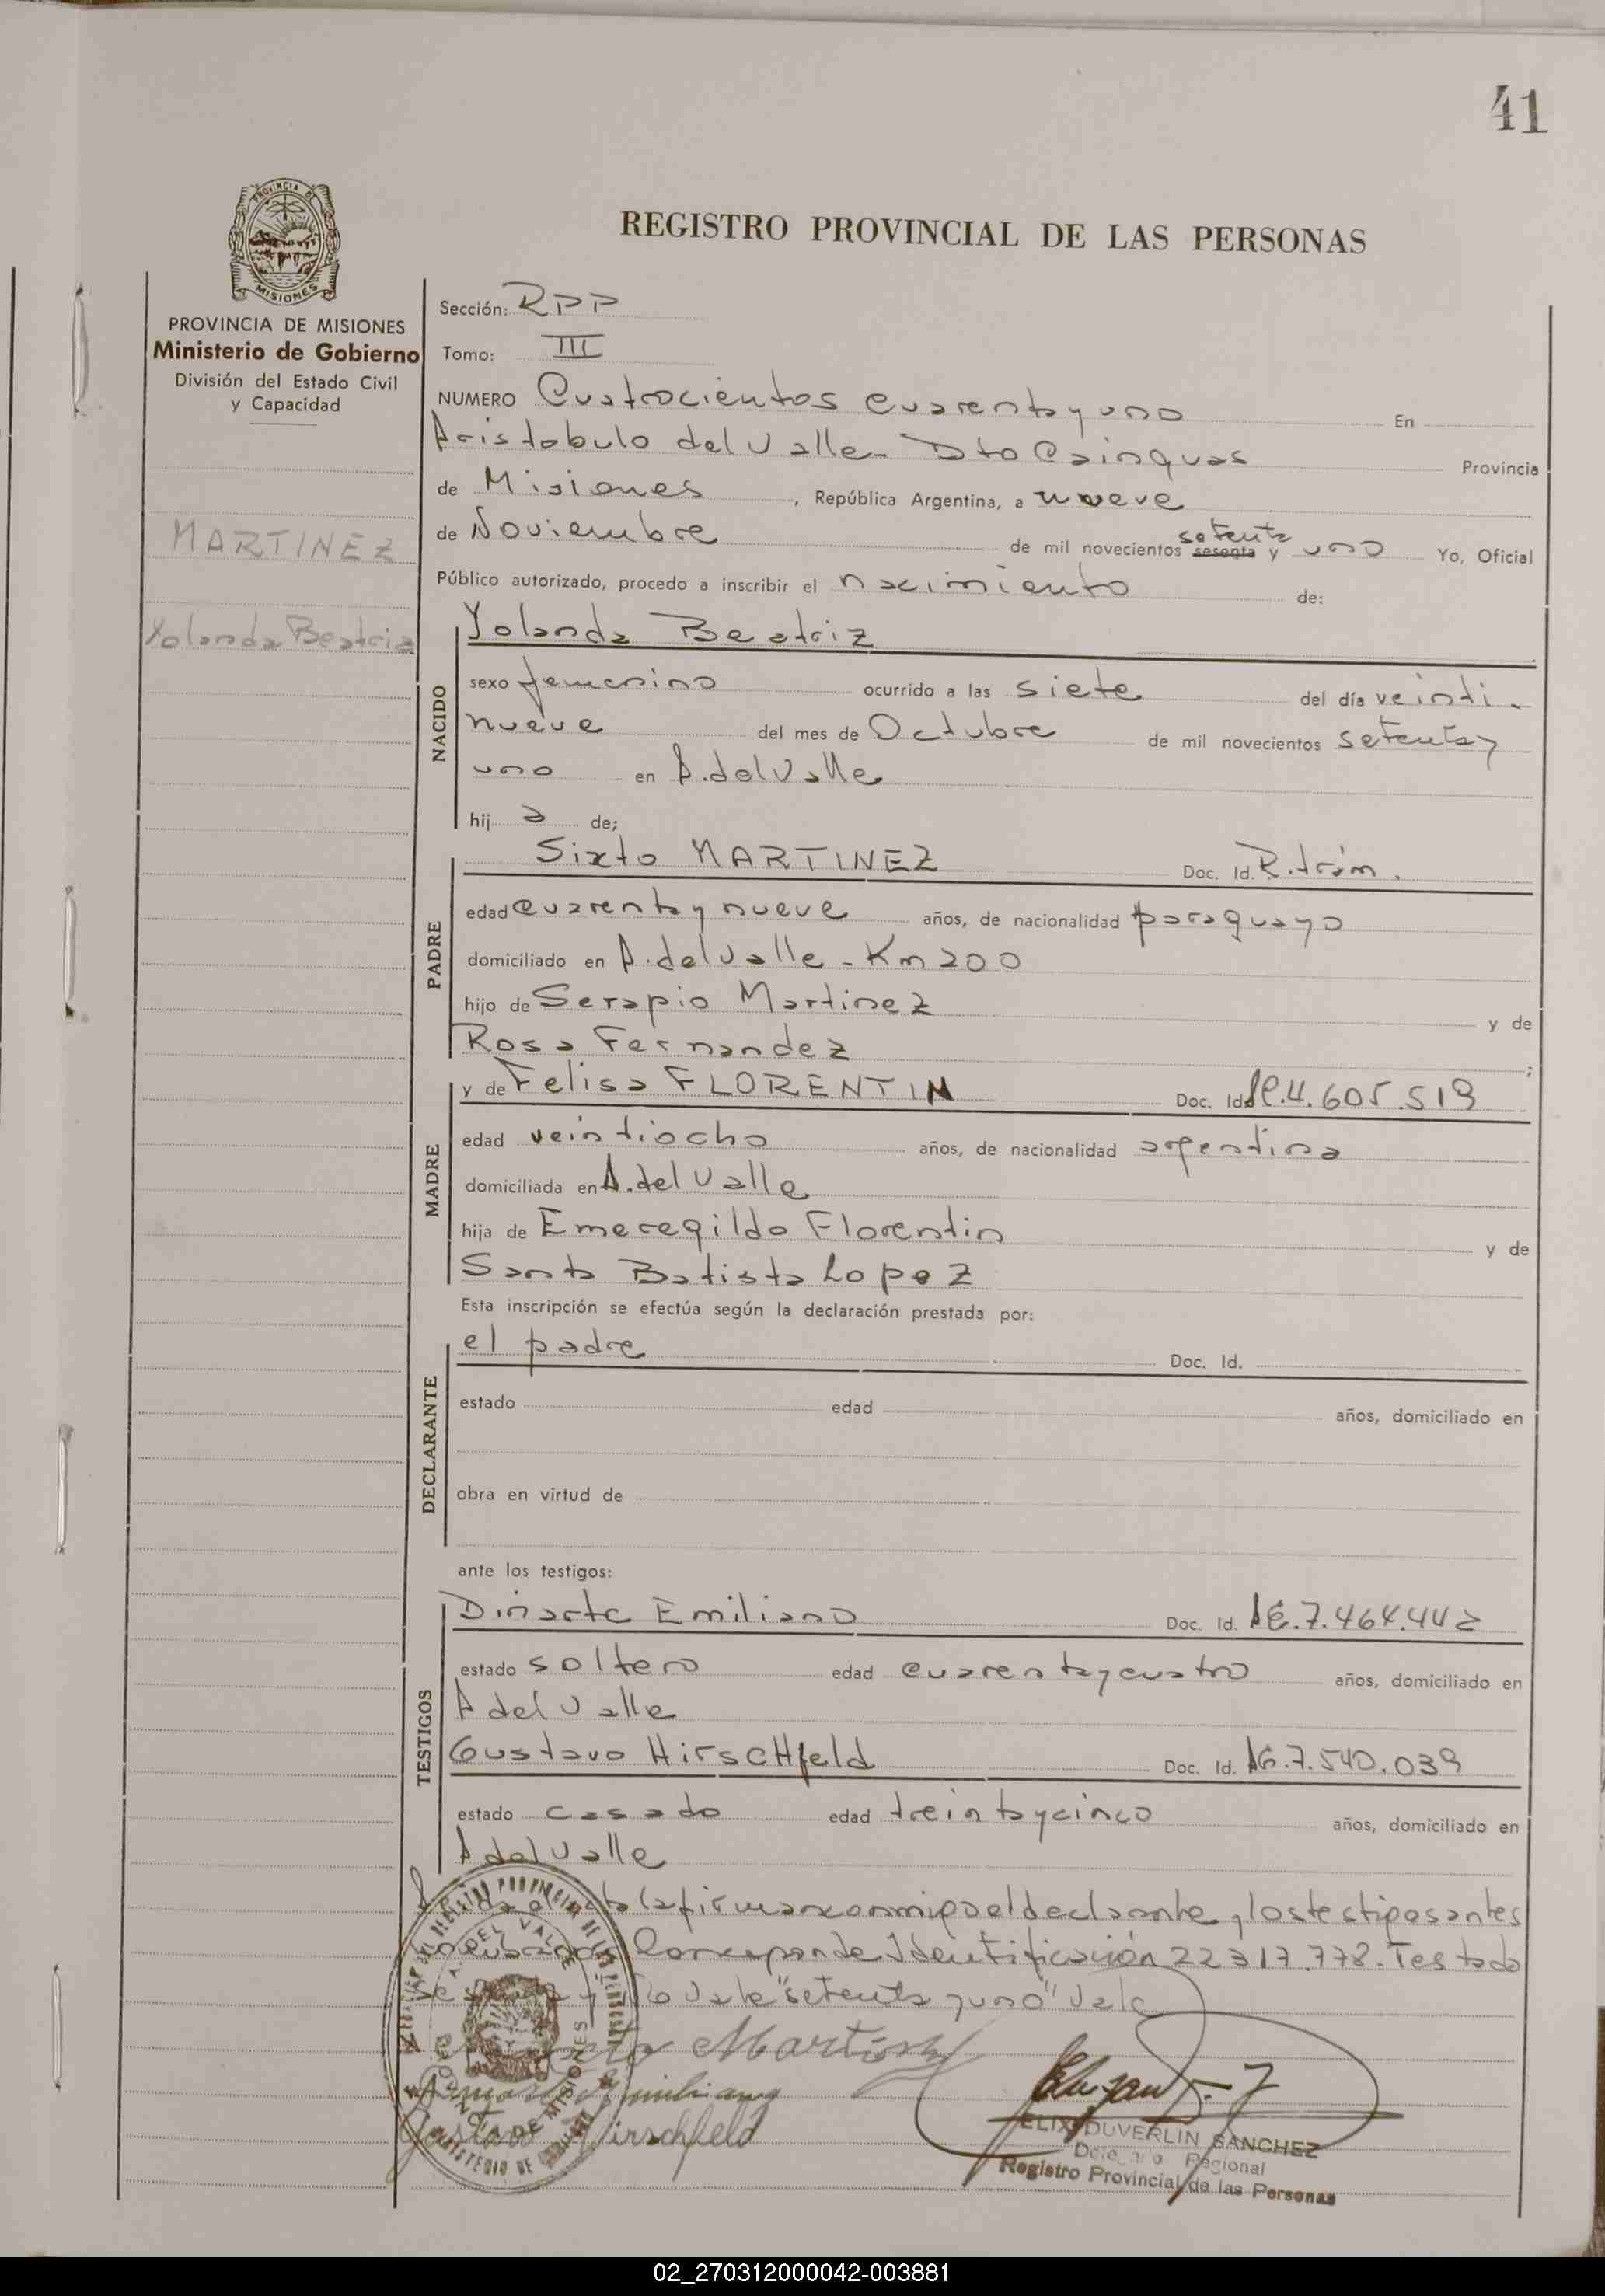 41
PROVINCIA DE
MISIONES
REGISTRO PROVINCIAL DE LAS PERSONAS
PROVINCIA DE MISIONES
Ministerio de Gobierno
División del Estado Civil
y Capacidad
MARTINEZ
Yolanda Beatriz
Sección: RPP
Tomo: III
NUMERO Cuatrocientos cuarenta y uno En
Aristobulo del Valle - Dto Cainguas Provincia
de Misiones, República Argentina, a nueve
setenta
de Noviembre de mil novecientos sesenta y uno Yo, Oficial
Público autorizado, procedo a inscribir el nacimiento de:
NACIDO
Yolanda Beatriz
sexo femenino ocurrido a las siete del día veinti-
nueve del mes de Octubre de mil novecientos setenta y
uno en A. del Valle
hij a de;
PADRE
Sixto MARTINEZ Doc. Id. R. trám.
edad cuarenta y nueve años, de nacionalidad paraguayo
domiciliado en A. del Valle - Km 200
hijo de Serapio Martinez y de
Rosa Fernandez ;
MADRE
y de Felisa FLORENTIN Doc. Id. 4.605.519
edad veintiocho años, de nacionalidad argentina
domiciliada en A. del Valle
hija de Emeregildo Florentin y de
Santa Batista Lopez
Esta inscripción se efectúa según la declaración prestada por:
DECLARANTE
el padre Doc. Id.
estado edad años, domiciliado en
obra en virtud de
ante los testigos:
TESTIGOS
Diñarte Emiliano Doc. Id. 7.464.442
estado soltero edad cuarenta y cuatro años, domiciliado en
A del Valle
Gustavo HirscHfeld Doc. Id. 7.540.039
estado casado edad treinta y cinco años, domiciliado en
A del Valle
la firman conmigo el declarante y los testigos antes
Corresponde Identificación 22317.778. Testado
No vale "setenta y uno" vale
Martinez
Emiliano
Gustavo Hirschfeld
DUVERLIN SANCHEZ
Regional
Registro Provincial de las Personas
02_270312000042-003881